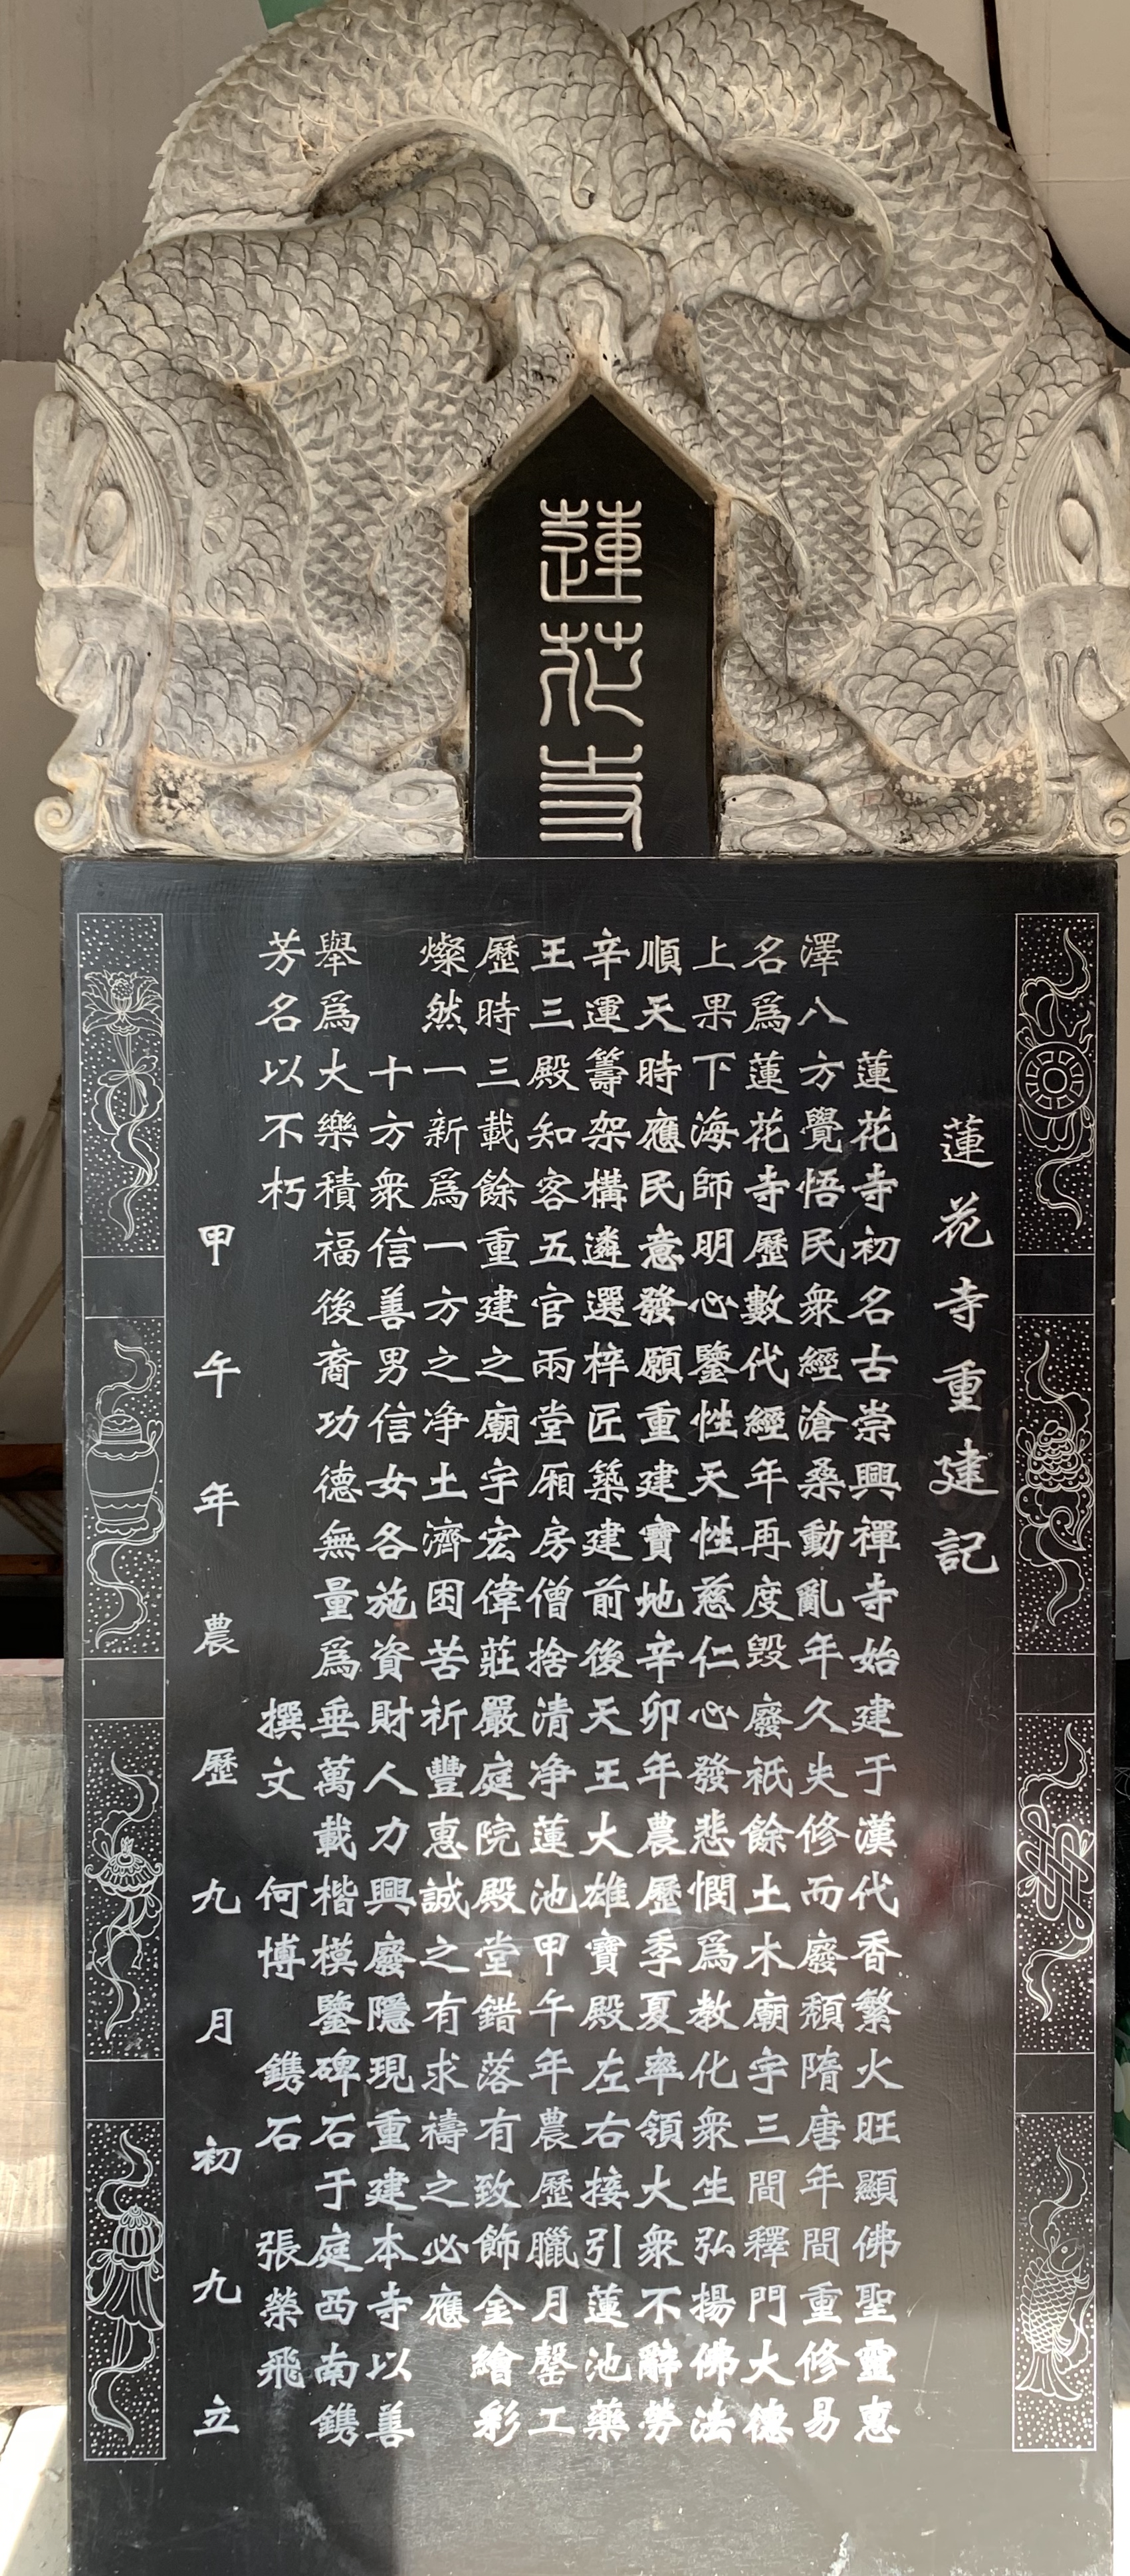 蓮花寺
蓮花寺重建記
蓮花寺初名古崇興禪寺始建于漢代香繁火旺顯佛聖靈惠
澤八方覺悟民衆經滄桑動亂年久失修而廢頹隋唐年間重修易
名爲蓮花寺歷數代經年再度毀廢祇餘土木廟宇三間釋門大德
上果下海師明心鑒性天性慈仁心發悲憫爲教化衆生弘揚佛法
順天時應民意發願重建寶地辛卯年農歷季夏率領大衆不辭勞
辛運籌架構遴選梓匠築建前後天王大雄寶殿左右接引蓮池藥
王三殿知客五官兩堂厢房僧捨清净蓮池甲午年農歷臘月罄工
歷時三載餘重建之廟宇宏偉莊嚴庭院殿堂錯落有致飾金繪彩
燦然一新爲一方之净土濟困苦祈豐惠誠之有求禱之必應
十方衆信善男信女各施資財人力興廢隱現重建本寺以善
舉爲大樂積福後裔功德無量爲垂萬載楷模鑒碑石于庭西南鐫
芳名以不朽 撰文 何博 鐫石 張榮飛
甲午年農歷九月初九立